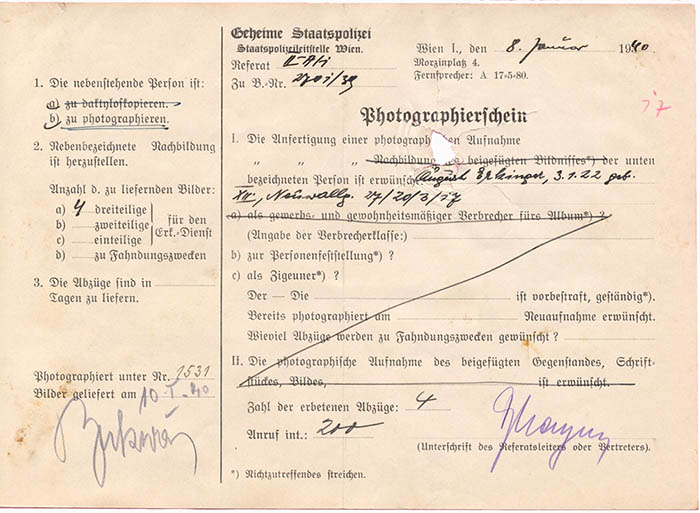 1. Die nebenstehende Person ist:
a) zu daktyloskopieren.
b) zu photographieren.
2. Nebenbezeichnete Nachbildung
ist herzustellen.
Anzahl d. zu liefernden Bilder:
a) 4 dreiteilige
b) zweiteilige
c) einteilige
für den
Erk.-Dienst
d) zu Fahndungszwecken
3. Die Abzüge sind in
Tagen zu liefern.
Photographiert unter Nr. 1531
Bilder geliefert am 10-I-40
Geheime Staatspolizei
Staatspolizeileitstelle Wien.
Referat
Zu B.-Nr. /39
Wien I., den 8. Januar 1940
Morzinplatz 4.
Fernsprecher: A 17-5-80.
17
Photographierschein
I. Die Anfertigung einer photographischen Aufnahme
" " " Nachbildung beigefügten Bildnisses*) der unten
bezeichneten Person ist erwünscht August 3.1.22 geb.
XII., 27/20/3/17
a) als gewerbs- und gewohnheitsmäßiger Verbrecher fürs Album*) ?
(Angabe der Verbrecherklasse:)
b) zur Personenfeststellung*) ?
c) als Zigeuner*) ?
Der — Die ist vorbestraft, geständig*).
Bereits photographiert am Neuaufnahme erwünscht.
Wieviel Abzüge werden zu Fahndungszwecken gewünscht ?
II. Die photographische Aufnahme des beigefügten Gegenstandes, Schrift-
stückes, Bildes, ist erwünscht.
Zahl der erbetenen Abzüge: 4
Anruf int.: 200
(Unterschrift des Referatsleiters oder Vertreters).
*) Nichtzutreffendes streichen.